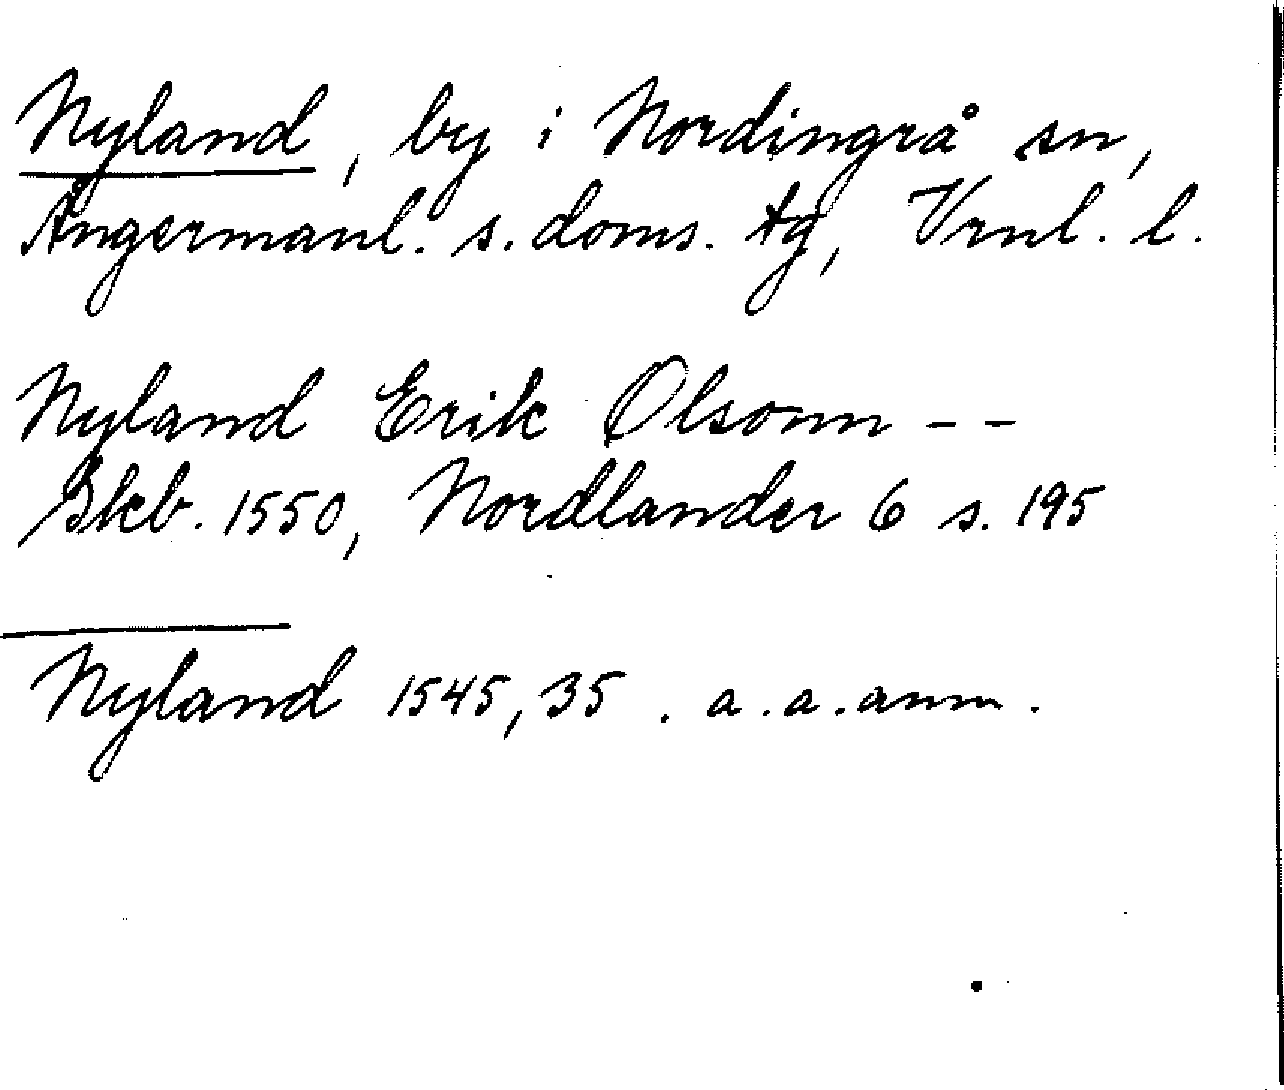 Nyland, by i Nordingrå sn,
Ångermanl. s. doms. tg, Vrnl. l.
Nyland Erik Olsonn --
Skb. 1550, Nordlander 6 s. 195
Nyland 1545, 35. a. a. anm.